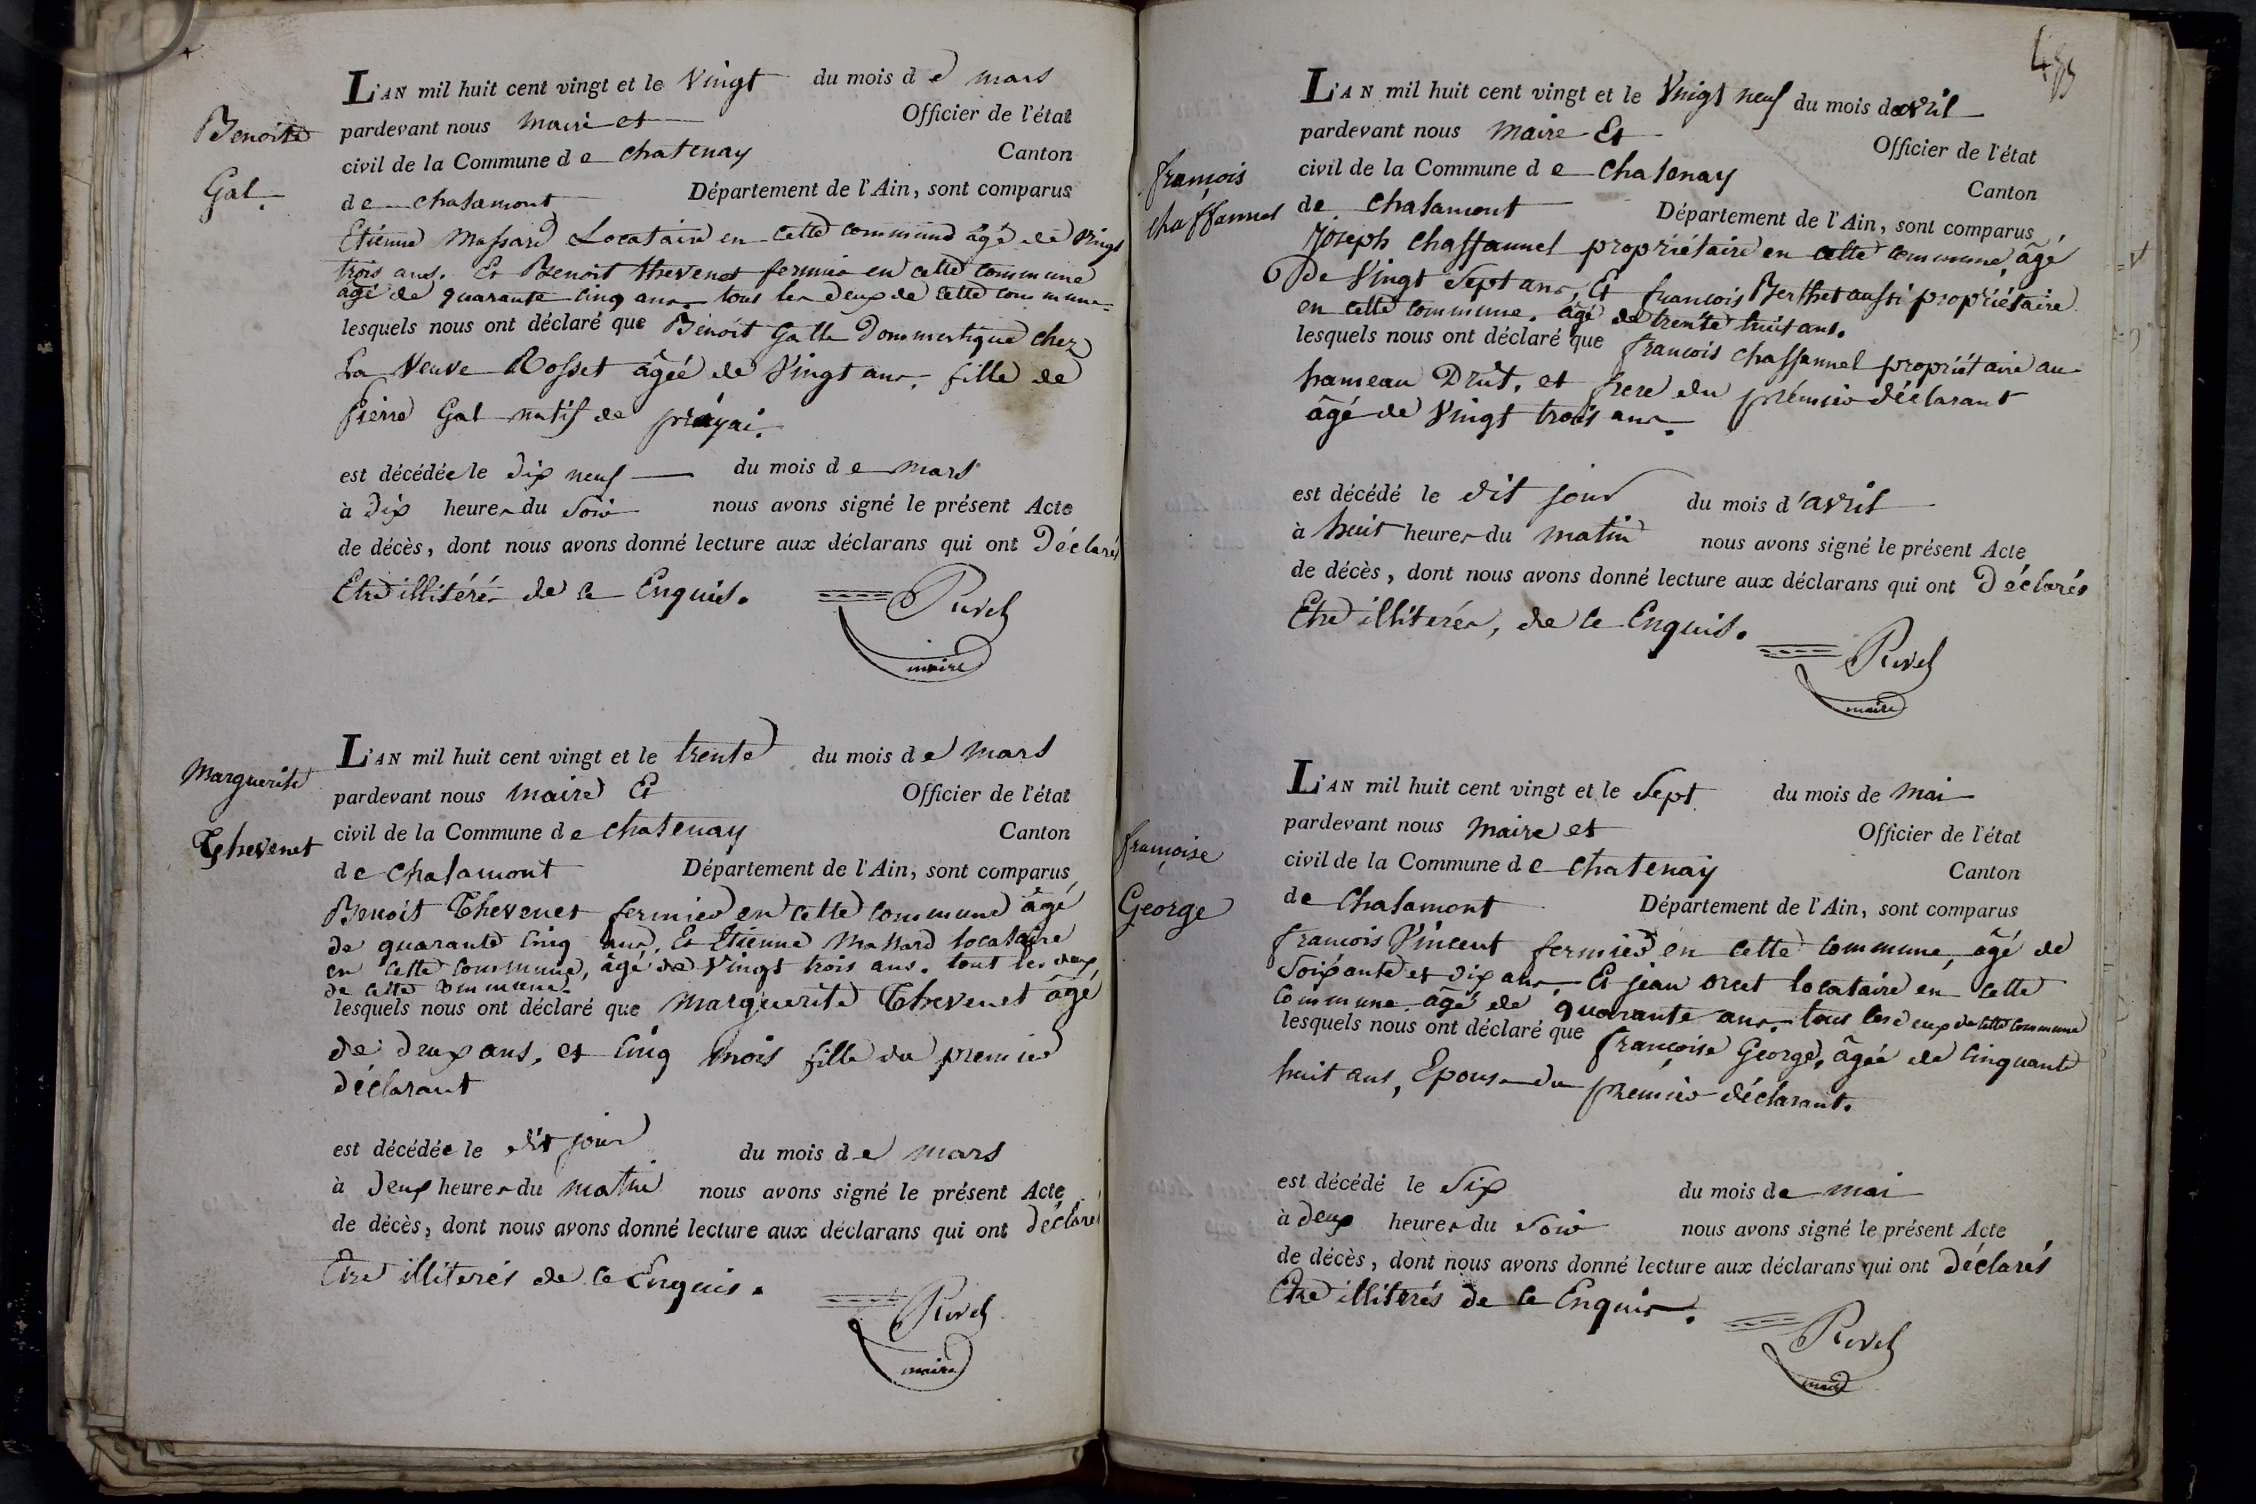 Benoite
Gal.
L'AN mil huit cent vingt et le Vingt du mois de mars
pardevant nous maire et Officier de l'état
civil de la Commune de chatenay Canton
de chalamont Département de l'Ain, sont comparus
Etienne Massard Locataire en cette commune âgé de vingt
trois ans. Et Benoit thevenet fermier en cette commune
âgé de quarante cinq ans. tous les deux de cette commune
lesquels nous ont déclaré que Benoit Galle Dommestique chez
La Veuve Rosset âgée de Vingt ans, fille de
pierre Gal natif de
est décédée le dix neuf du mois de mars
à dix heures du Soir nous avons signé le présent Acte
de décès, dont nous avons donné lecture aux déclarans qui ont Déclarés
Etre illitérés de ce Enquis.
maire
Marguerite
Thevenet
L'AN mil huit cent vingt et le trente du mois de Mars
pardevant nous maire Et Officier de l'état
civil de la Commune de chatenay Canton
de chalamont Département de l'Ain, sont comparus
Benoit Thevenet fermier en cette commune âgé
de quarante cinq ans, Et Etienne Massard locataire
en cette commune, âgé de vingt trois ans. tout les deux
de cette commune.
lesquels nous ont déclaré que Marguerite Thevenet âgé
de deux ans, et cinq mois fille du premier
déclarant
est décédée le dit jour du mois de mars
à deux heures du matin nous avons signé le présent Acte
de décès, dont nous avons donné lecture aux déclarans qui ont déclarés
Etre illiterés de ce Enquis.
maire
françois
chaffannel
L'AN mil huit cent vingt et le Vingt neuf du mois d'avril
pardevant nous Maire Et Officier de l'état
civil de la Commune de chatenay Canton
de chalamont Département de l'Ain, sont comparus
Joseph chaffannel propriétaire en cette commune, âgé
De Vingt Sept ans, Et francois Berthet aussi propriétaire
en cette commune. âgé de trente huit ans.
lesquels nous ont déclaré que francois chaffannel propriétaire au
hameau Drut, et frere du prémier déclarant
âgé de Vingt trois ans.
est décédé le dit jour du mois d'avril
à huit heures du matin nous avons signé le présent Acte
de décès, dont nous avons donné lecture aux déclarans qui ont Déclarés
Etre illiterés, de ce Enquis.
maire
françoise
George
L'AN mil huit cent vingt et le Sept du mois de Mai
pardevant nous Maire et Officier de l'état
civil de la Commune de chatenay Canton
de Chalamont Département de l'Ain, sont comparus
francois Vincent fermier en cette commune, âgé de
Soixante et dix ans, Et jean orcet locataire en cette
commune âgé de quarante ans. tous les deux de cette commune
lesquels nous ont déclaré que françoise George, âgée de cinquante
huit ans, Epouse du prémier déclarant.
est décédé le Six du mois de mai
à deux heures du Soir nous avons signé le présent Acte
de décès, dont nous avons donné lecture aux déclarans qui ont déclarés
Etre illiterés de ce Enquis.
maire